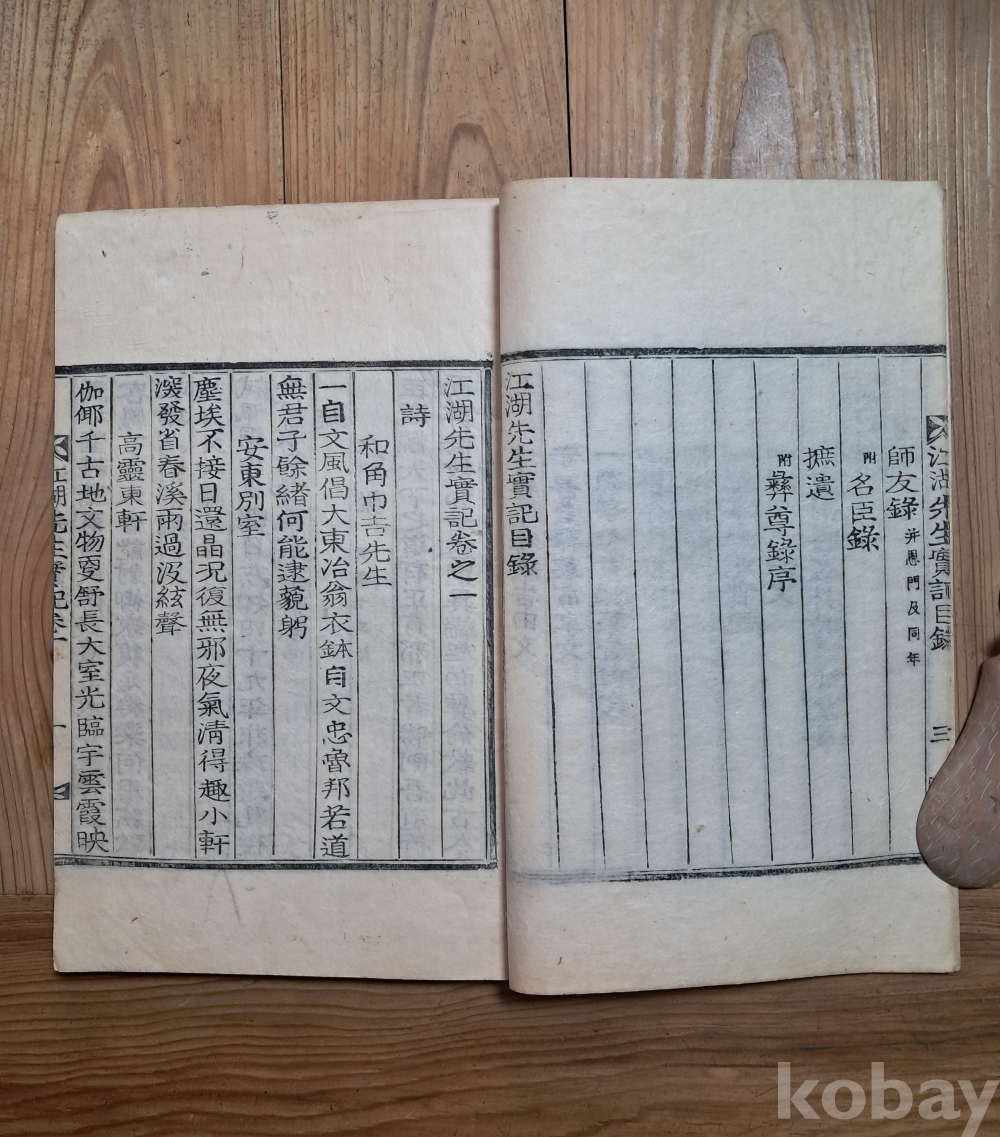 江湖先生實記目錄
三
師友錄 并恩門及同年
附 名臣錄
摭遺
附 彝尊錄序
江湖先生實記目錄
江湖先生實記卷之一
詩
和角巾吉先生
一自文風倡大東冶翁衣鉢自文忠魯邦若道
無君子餘緒何能逮藐躬
安東別室
塵埃不接日還晶況復無邪夜氣淸得趣小軒
深發省春溪雨過沒絃聲
高靈東軒
伽倻千古地文物夏舒長大室光臨宇雲霞映
江湖先生實記卷一
一
kobay